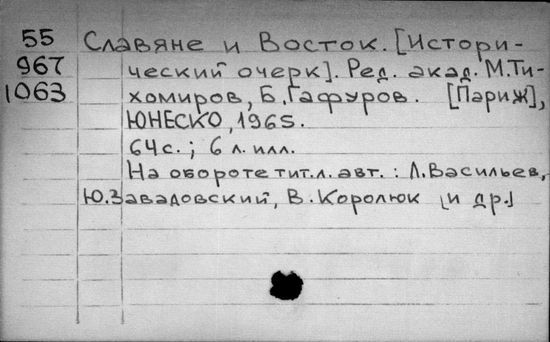 55 Славяне и Восток. [Истори-
967 ческий очерк]. Ред. акад. М.Ти-
1063 хомиров, Б.Гафуров. [Париж],
ЮНЕСКО, 1965.
64с.; 6 л. илл.
На обороте тит.л. авт.: Л.Васильев,
Ю.Завадовский, В.Королюк [и др.]